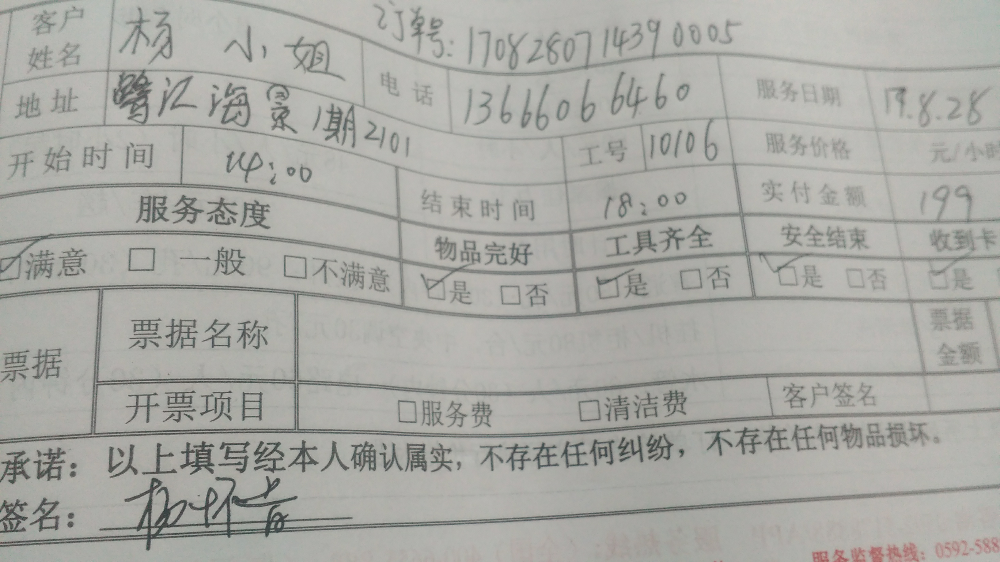 订单号:170828071439 0005
客户姓名 杨 小姐 电话 13666066460 服务日期 17.8.28
地址 鹭江海景1期2101 工号 10106 服务价格 元/小时
开始时间 14:00 结束时间 18:00 实付金额 199
服务态度 物品完好 工具齐全 安全结束 收到卡
☑满意 □一般 □不满意 ☑是 □否 ☑是 □否 ☑是 □否 ☑是
票据 票据名称 票据金额
开票项目 □服务费 □清洁费 客户签名
承诺:以上填写经本人确认属实,不存在任何纠纷,不存在任何物品损坏。
签名:
服务监督热线:0592-588